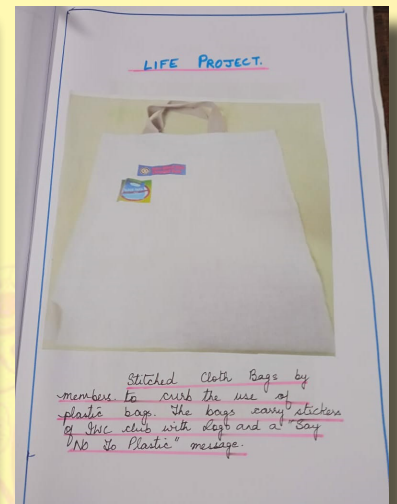 LIFE PROJECT.
Stitched Cloth Bags by
members. to curb the use of
plastic bags. The bags carry stickers
of IWC club with Logo and a "Say
"No To Plastic" message.